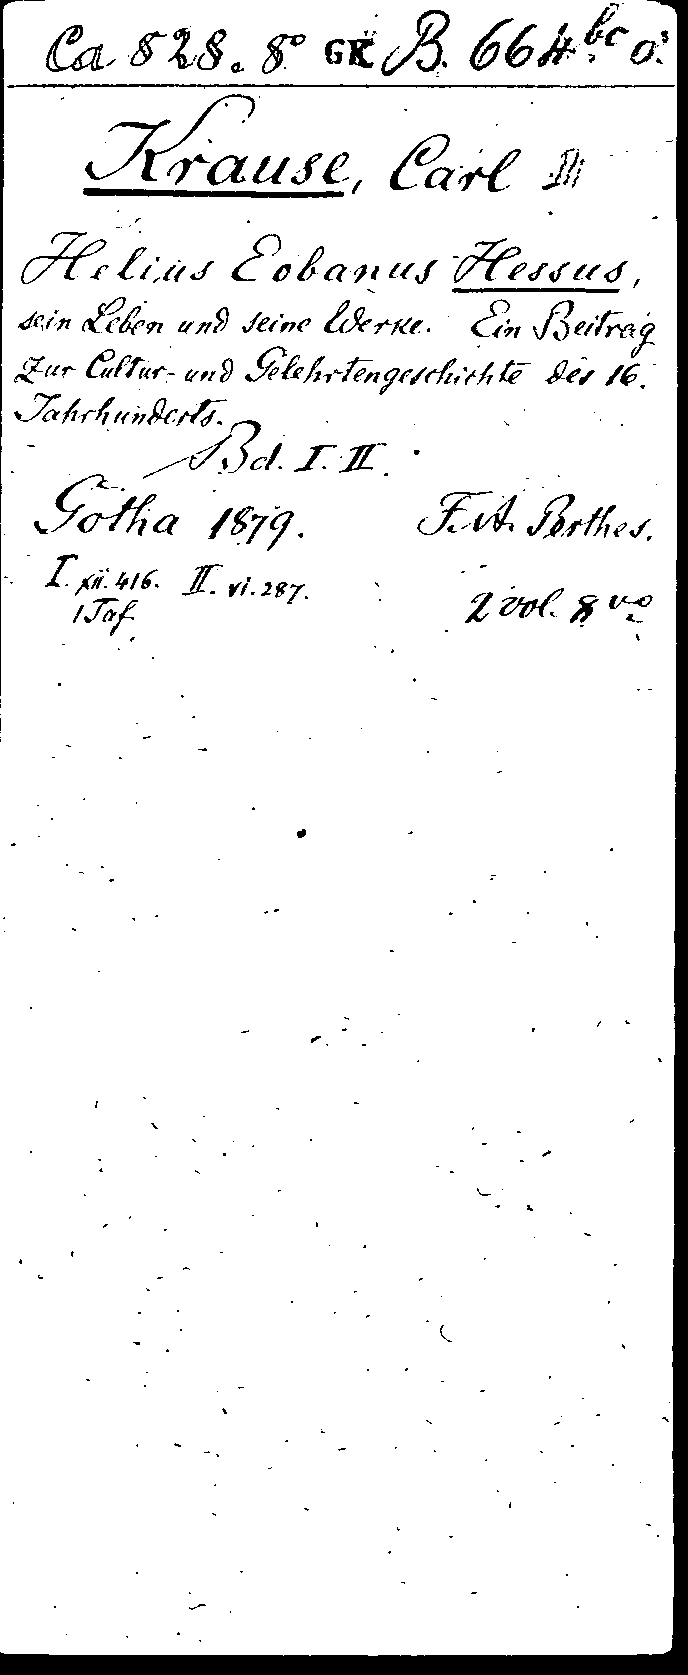 Ca 828. 8° GK B. 664 bc o.
Krause, Carl III
Helius Eobanus Hessus,
sein Leben und seine Werke. Ein Beitrag
zur Cultur- und Gelehrtengeschichte des 16.
Jahrhunderts.
Bd. I. II.
Gotha 1879. F. A. Perthes.
I. xii. 416. II. vi. 287.
1 Taf. 2 vol. 8vo